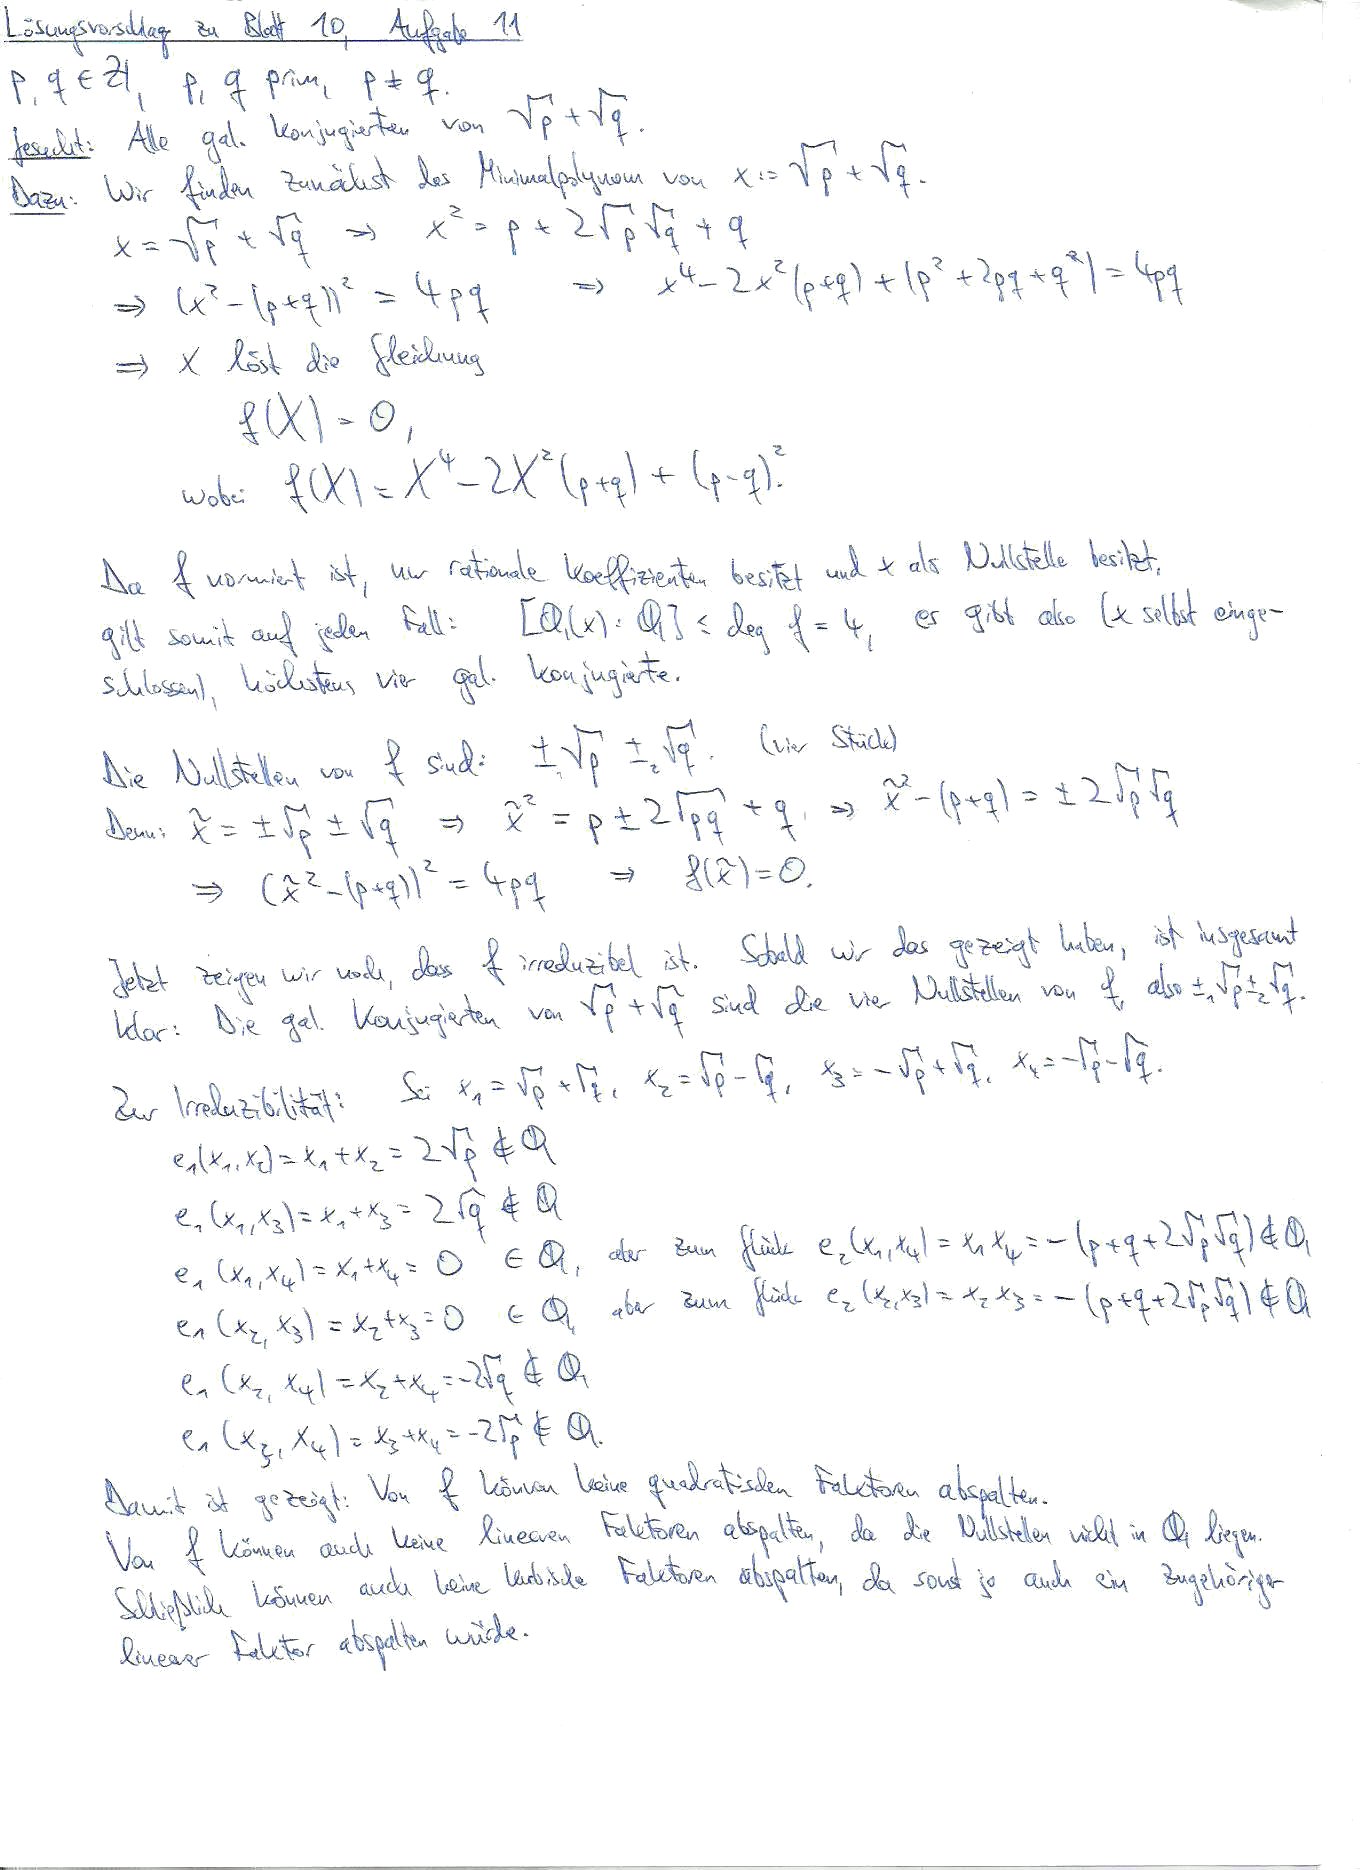 Lösungsvorschlag zu Blatt 10, Aufgabe 11
p, q ∈ ℤ, p, q prim, p ≠ q.
Gesucht: Alle gal. Konjugierten von √p + √q.
Dazu: Wir finden zunächst das Minimalpolynom von x := √p + √q.
x = √p + √q ⇒ x² = p + 2√p√q + q
⇒ (x² - (p+q))² = 4pq ⇒ x⁴ - 2x²(p+q) + (p² + 2pq + q²) = 4pq
⇒ x löst die Gleichung
f(X) = 0,
wobei f(X) = X⁴ - 2X²(p+q) + (p-q)².
Da f normiert ist, nur rationale Koeffizienten besitzt und x als Nullstelle besitzt,
gilt somit auf jeden Fall: [ℚ(x) : ℚ] ≤ deg f = 4, es gibt also (x selbst einge-
schlossen), höchstens vier gal. Konjugierte.
Die Nullstellen von f sind: ±₁√p ±₂√q. (vier Stück)
Denn: x̃ = ±√p ± √q ⇒ x̃² = p ± 2√pq + q, ⇒ x̃² - (p+q) = ±2√p√q
⇒ (x̃² - (p+q))² = 4pq ⇒ f(x̃) = 0.
Jetzt zeigen wir noch, dass f irreduzibel ist. Sobald wir das gezeigt haben, ist insgesamt
klar: Die gal. Konjugierten von √p + √q sind die vier Nullstellen von f, also ±₁√p ±₂√q.
Zur Irreduzibilität: Sei x₁ = √p + √q, x₂ = √p - √q, x₃ = -√p + √q, x₄ = -√p - √q.
e₁(x₁, x₂) = x₁ + x₂ = 2√p ∉ ℚ
e₁(x₁, x₃) = x₁ + x₃ = 2√q ∉ ℚ
e₁(x₁, x₄) = x₁ + x₄ = 0 ∈ ℚ, aber zum Glück e₂(x₁, x₄) = x₁ x₄ = -(p + q + 2√p√q) ∉ ℚ
e₁(x₂, x₃) = x₂ + x₃ = 0 ∈ ℚ, aber zum Glück e₂(x₂, x₃) = x₂ x₃ = -(p + q + 2√p√q) ∉ ℚ
e₁(x₂, x₄) = x₂ + x₄ = -2√q ∉ ℚ
e₁(x₃, x₄) = x₃ + x₄ = -2√p ∉ ℚ.
Damit ist gezeigt: Von f können keine quadratischen Faktoren abspalten.
Von f können auch keine linearen Faktoren abspalten, da die Nullstellen nicht in ℚ liegen.
Schließlich können auch keine kubische Faktoren abspalten, da sonst ja auch ein zugehöriger
linearer Faktor abspalten würde.